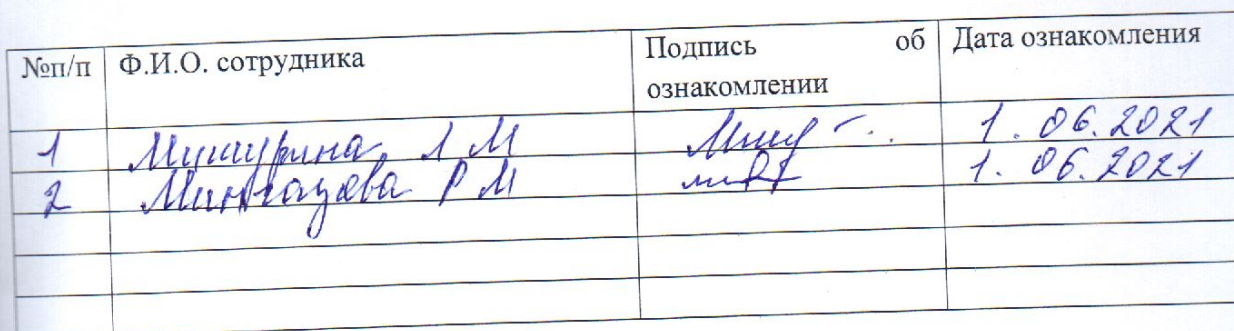 №п/п Ф.И.О. сотрудника Подпись об ознакомлении Дата ознакомления
1 Мишурина Л М 1. 06. 2021
2 Мингазова Р М 1. 06. 2021